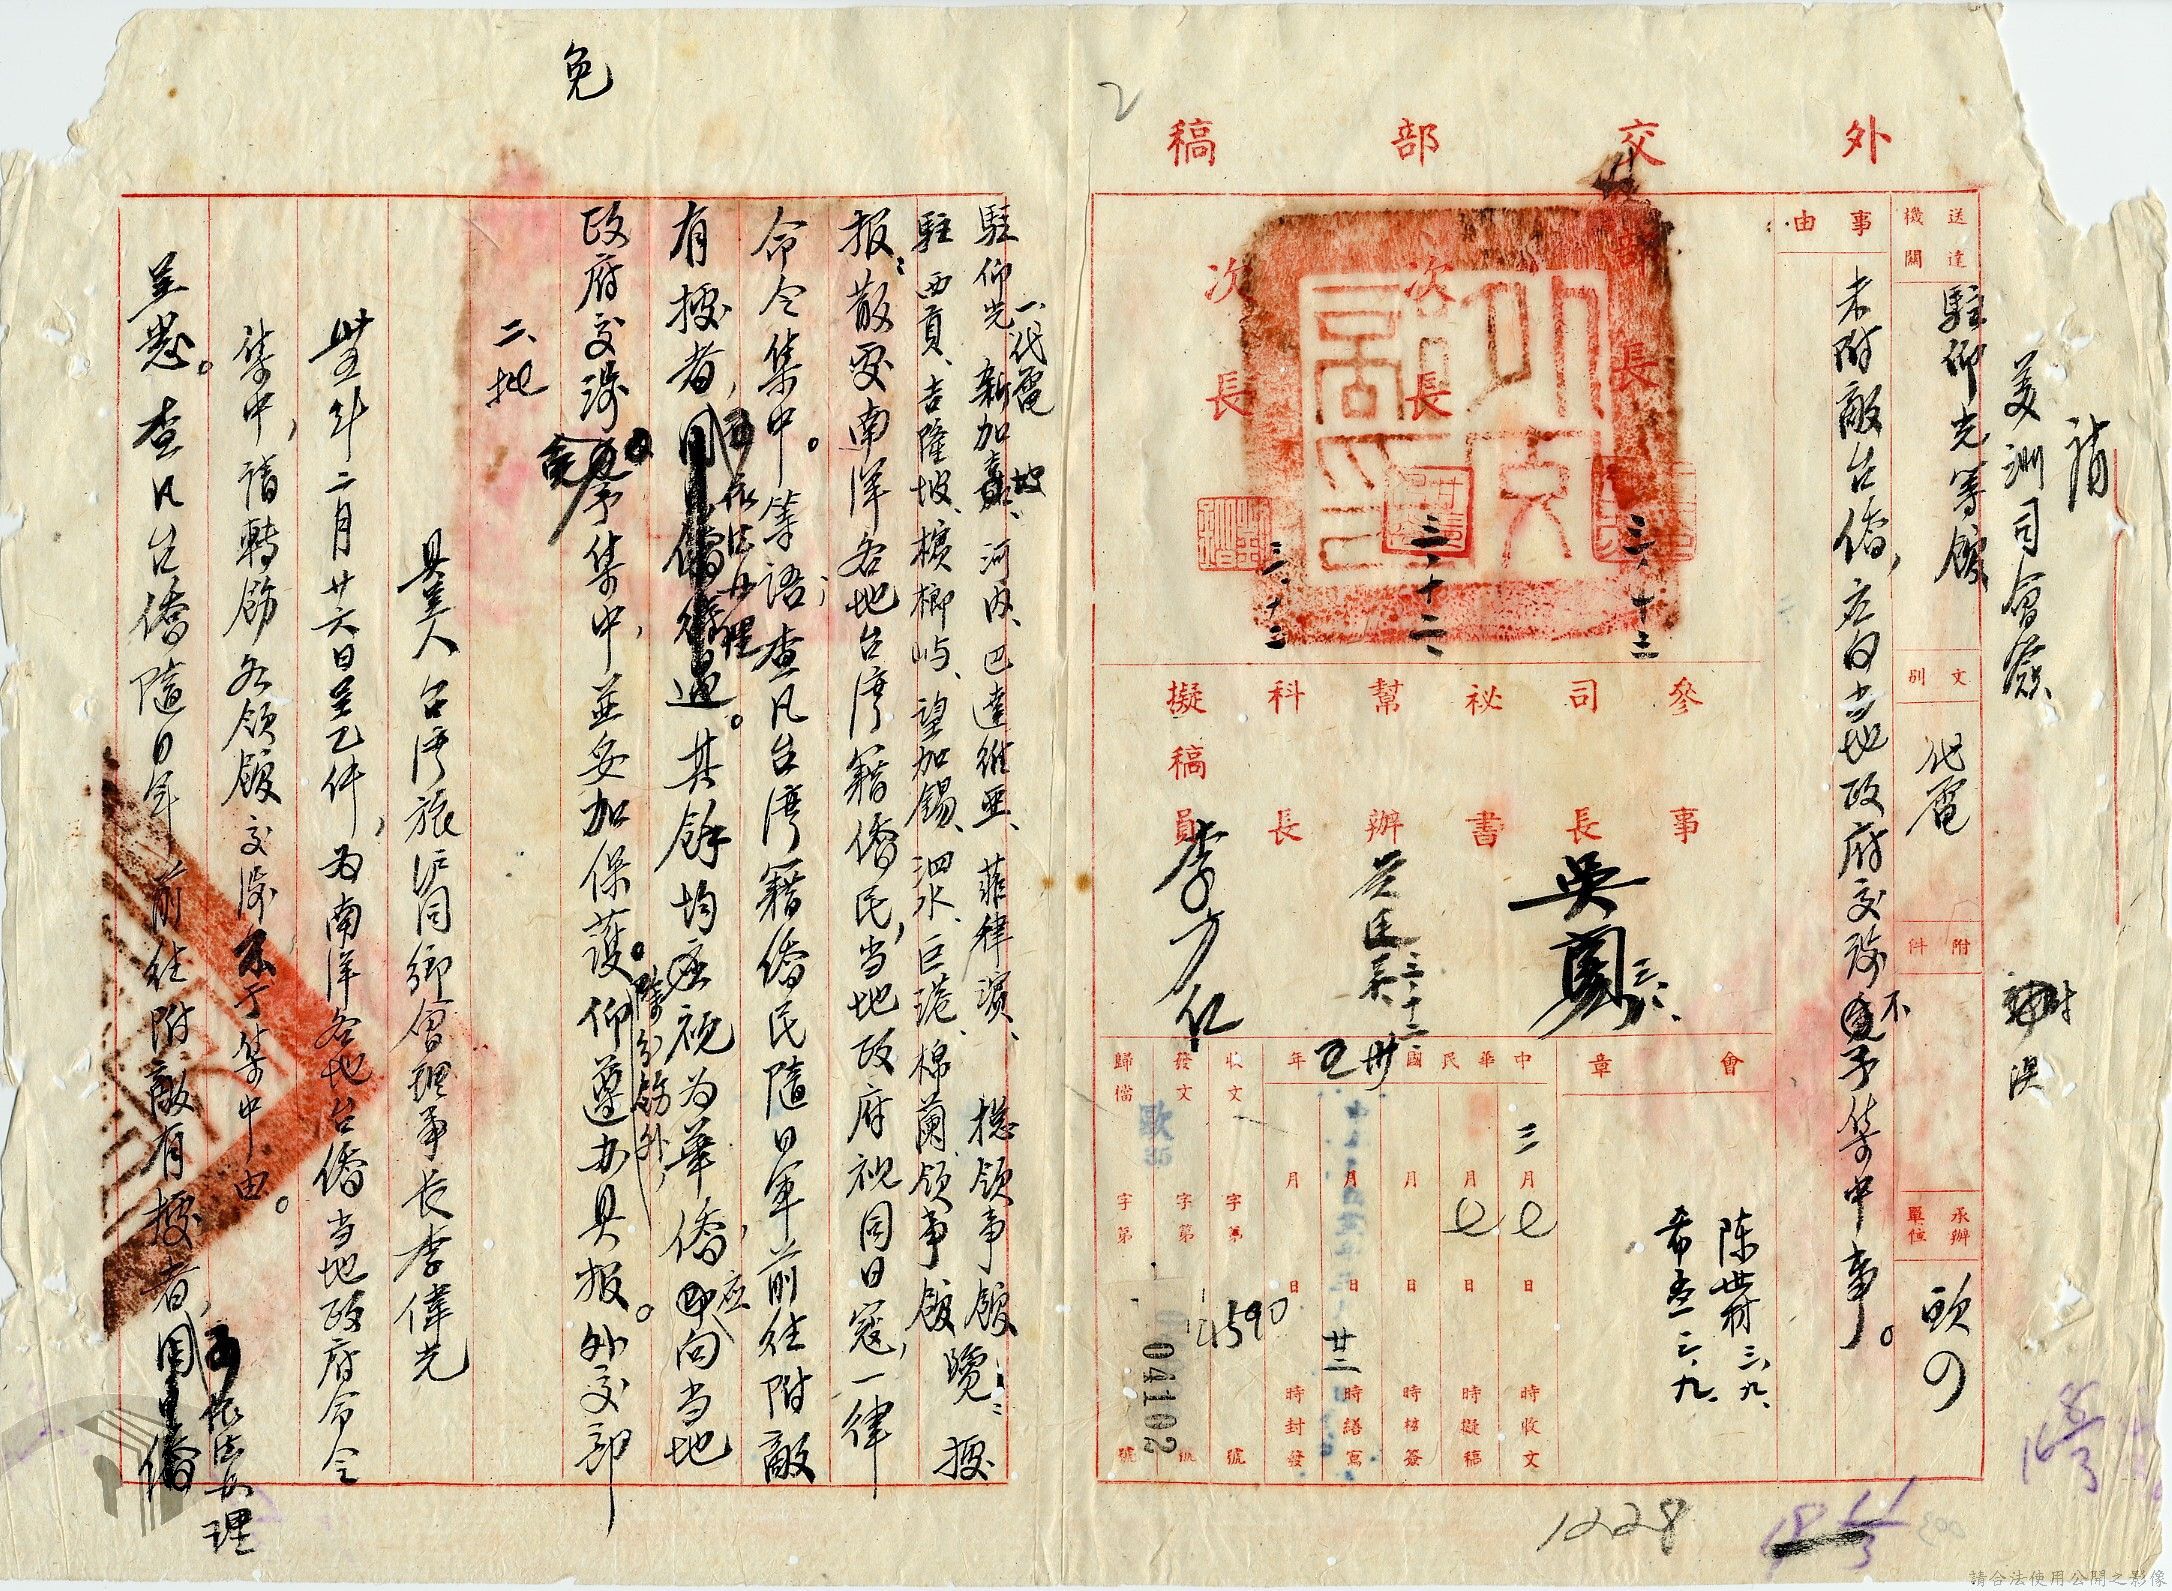 外交部稿
請
美洲司會簽
送達機關
駐仰光等館
文別
代電
附件
承辦單位
歐四
事由
未附敵台僑,應向當地政府交涉不予集中事。
部長
次長
次長
三、十三
三、十二、
三、十三
參事
司長
祕書
幫辦
科長
擬稿員
李方仁
會章
陈世材 三、九、
三、九、
中華民國卅五年
三月七日 時收文
月七日 時擬稿
月 日 時核簽
月廿二日 時繕寫
月 日 時封發
收文 字第 4590 號
發文 歐35 字第 04102 號
歸檔 字第 號
1228
2
免
一、代電
駐仰光、新加坡、河内、巴達維亞、菲律濱、總領事館覽:
駐西貢、吉隆坡、檳榔屿、望加錫、泗水、巨港、棉蘭領事館 據
报:散處南洋各地台湾籍僑民,当地政府視同日寇,一律
命令集中。等語;查凡台湾籍僑民隨日軍前往附敵
有據者,可依法办理。其餘均应視为華僑,应向当地
政府交涉免予集中,並妥加保護。除分飭外,仰遵办具报。外交部
二、批
具呈人 台湾旅沪同鄉會理事长李偉光
卅五年二月廿六日呈乙件,为南洋各地台僑当地政府命令
集中,請轉飭各領館交涉不予集中由。
呈悉。查凡台僑隨日軍前往附敵有據者,可依法办理
請合法使用公開之影像